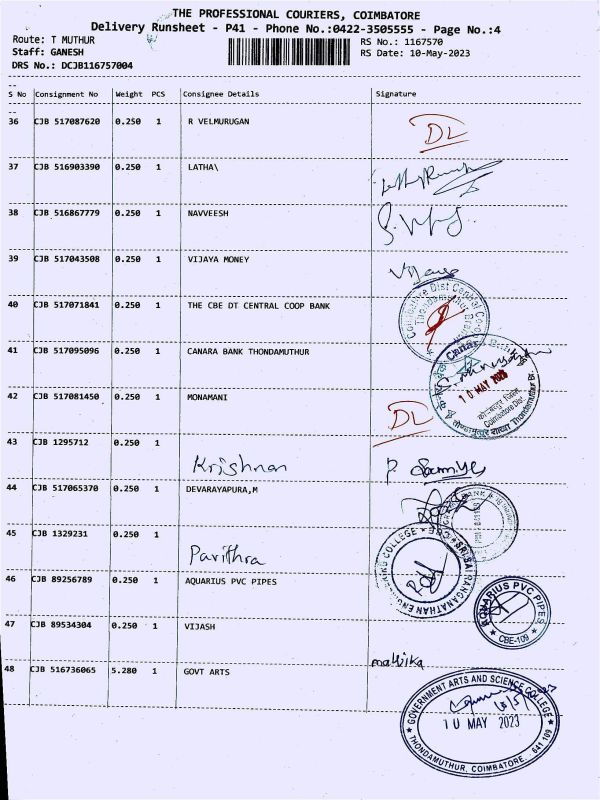 THE PROFESSIONAL COURIERS, COIMBATORE
Delivery Runsheet - P41 - Phone No.:0422-3505555 - Page No.:4
Route: T MUTHUR
RS No.: 1167570
Staff: GANESH
RS Date: 10-May-2023
DRS No.: DCJB116757004
--
S No Consignment No Weight PCS Consignee Details Signature
--
36 CJB 517087620 0.250 1 R VELMURUGAN
DL
37 CJB 516903390 0.250 1 LATHA\
38 CJB 516867779 0.250 1 NAVVEESH
39 CJB 517043508 0.250 1 VIJAYA MONEY
40 CJB 517071841 0.250 1 THE CBE DT CENTRAL COOP BANK
Coimbatore Dist Central Co-op
Thondamuthur Branch
41 CJB 517095096 0.250 1 CANARA BANK THONDAMUTHUR
Canara Bank
10 MAY 2023
Coimbatore Dist
Thondamuthur Br.
42 CJB 517081450 0.250 1 MONAMANI
DL
43 CJB 1295712 0.250 1
Krishnan
44 CJB 517065370 0.250 1 DEVARAYAPURA,M
45 CJB 1329231 0.250 1
Pavithra
SRI SAI RANGANATHAN ENGINEERING COLLEGE * CBE *
46 CJB 89256789 0.250 1 AQUARIUS PVC PIPES
AQUARIUS PVC PIPES
* CBE-109 *
47 CJB 89534304 0.250 1 VIJASH
mallika
48 CJB 516736065 5.280 1 GOVT ARTS
GOVERNMENT ARTS AND SCIENCE COLLEGE
10 MAY 2023
THONDAMUTHUR, COIMBATORE. - 641 109